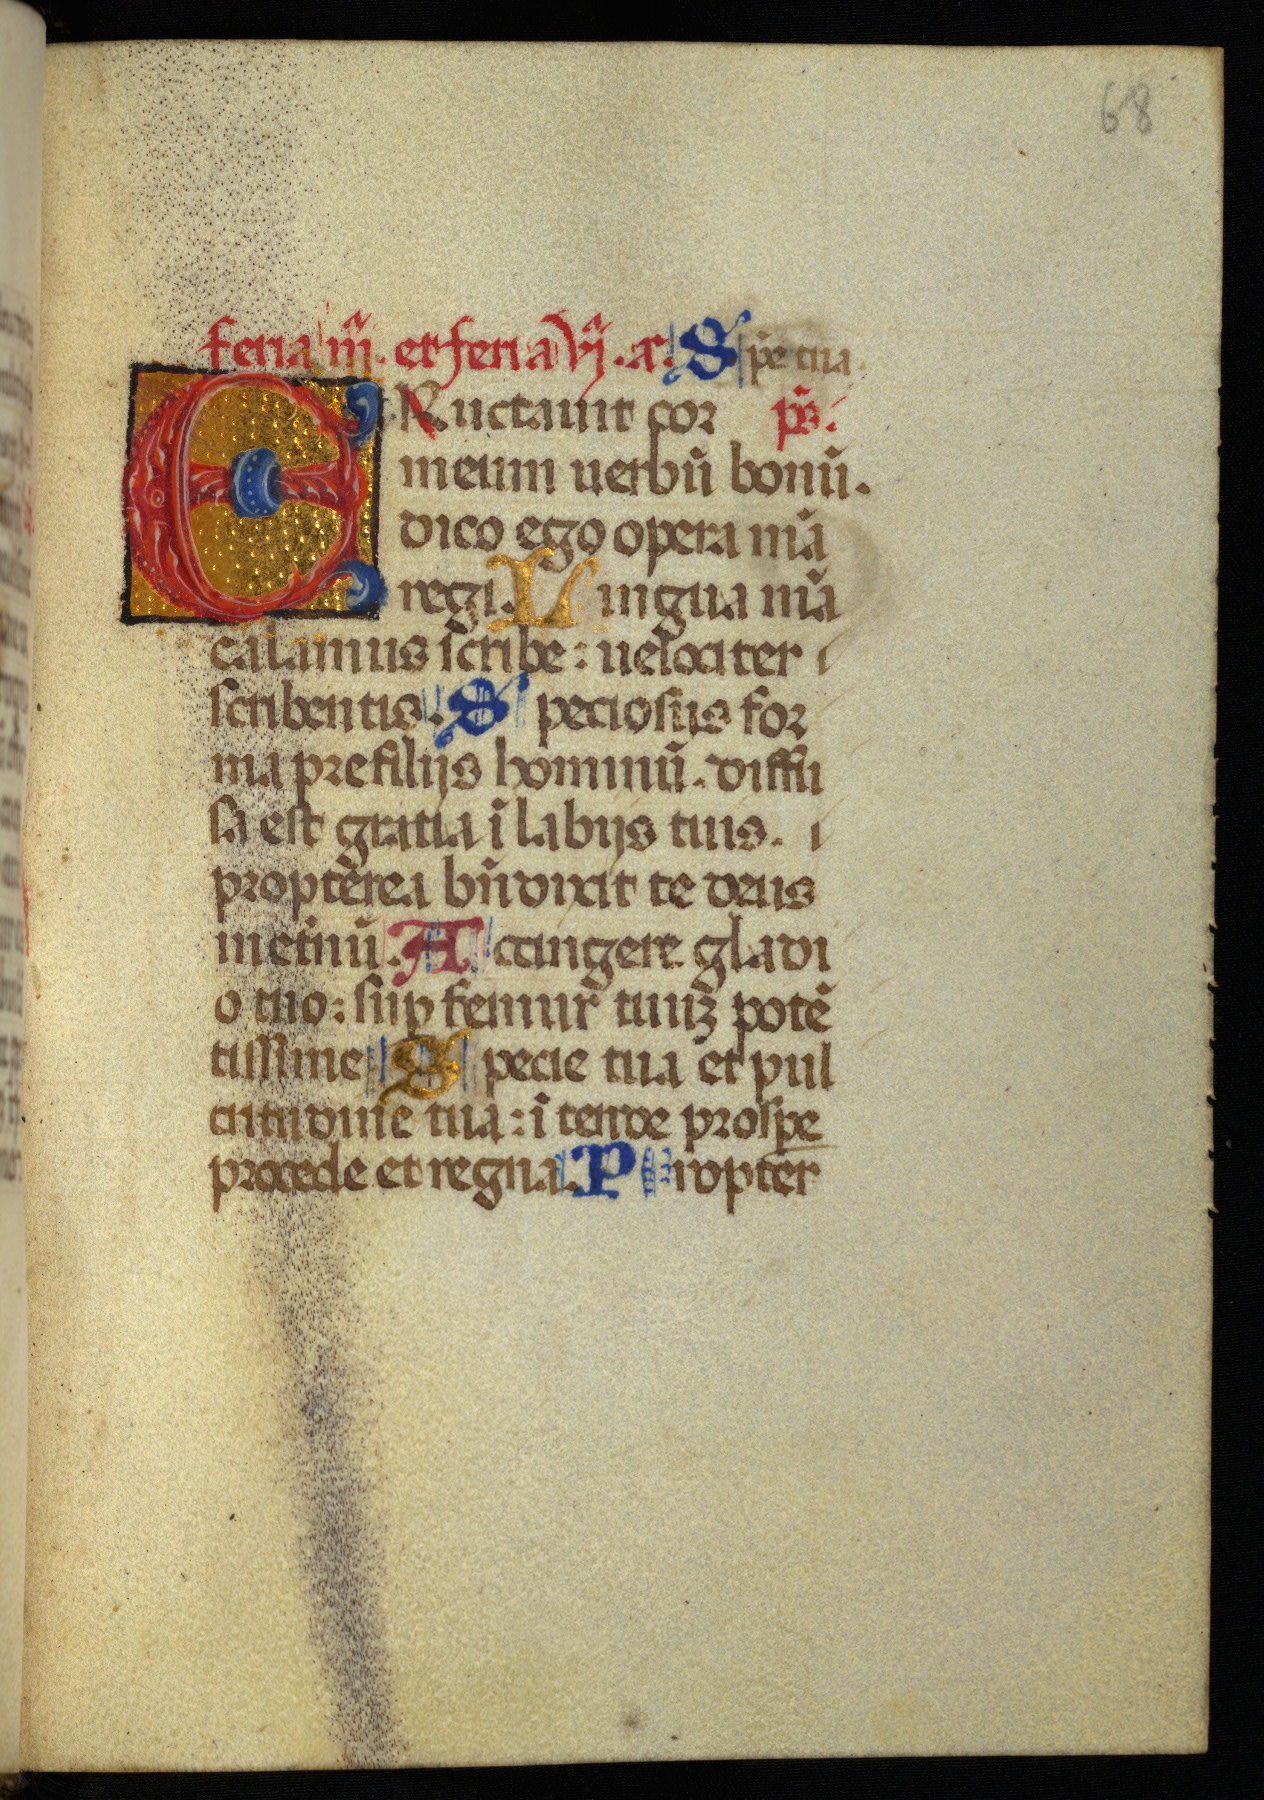 68
feria iij̄. et feria vj̄. añ. Spe tua.
ERuctauit cor ps̄.
meum uerbū bonū.
dico ego opera mā
regi. Lingua mā
calamus scribe: uelociter
scribentis. Speciosus for
ma prefilijs hominū. diffu
sa est gratia ī labijs tuis.
propterea bn̄dixit te deus
inet̄nū. Accingere gladi
o tuo: sup femur̄ tuuʒ potē
tissime Specie tua et pul
critudine tua: ītende prospe
procede et regna. Propter